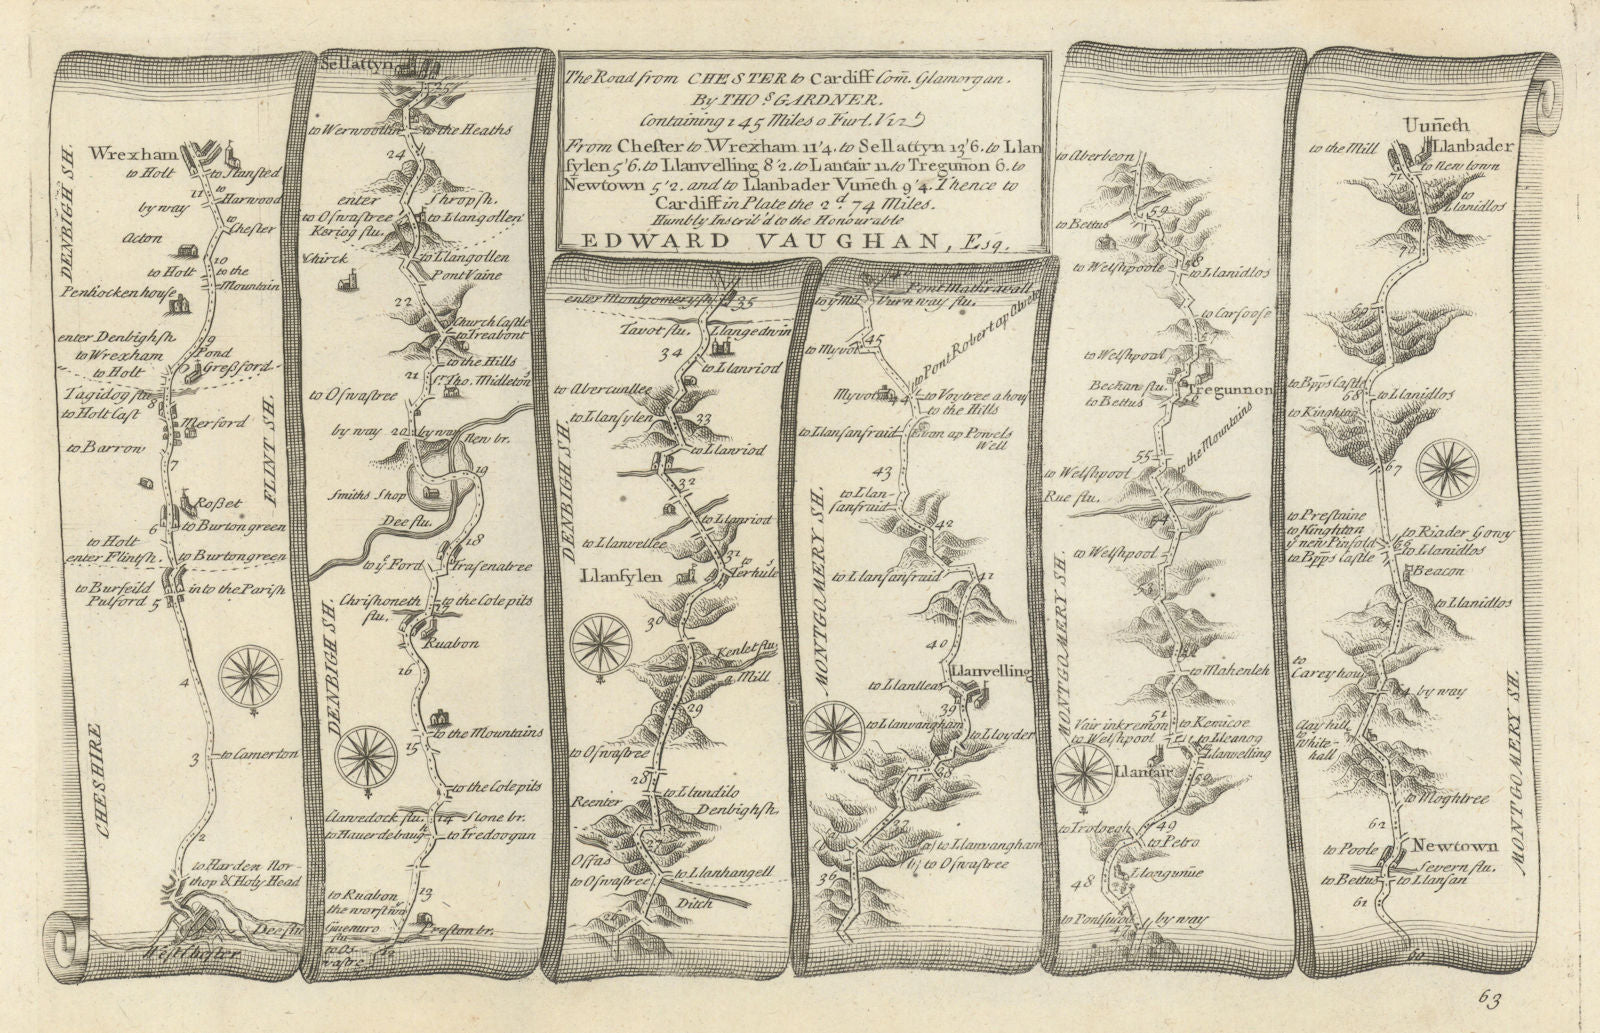 The Road from CHESTER to Cardiff Com̄. Glamorgan.
By THOˢ GARDNER.
Containing 145 Miles
From Chester to Wrexham 11'4. to Sellattyn 13'6. to Llan
sylen 5'6. to Llanvelling 8'2. to Lantair 11. to Tregun̄on 6. to
Newtown 5'2. and to Llanbader Vun̄eth 9'4. Thence to
Cardiff in Plate the 2ᵈ. 74 Miles.
Humbly Inscrib'd to the Honourable
EDWARD VAUGHAN, Esq.
DENBIGH SH.
Wrexham
to Holt
to Stansted
11
to
Harwood
by way
to
Chester
Acton
10
to Holt
to the
Mountain
Penhocken house
9
enter Denbighsh
to Wrexham
Pond
to Holt
Gresford
Tagidog flu
8
to Holt Cast
Merford
to Barrow
7
FLINT SH.
Rosset
6
to Burton green
to Holt
enter Flintsh.
to Burtongreen
to Burfeild
into the Parish
Pulford
5
4
3
to Camerton
CHESHIRE
2
to Harden Nor-
thop & Holy Head
Dee flu
West Chester
Sellattyn
25
to the Heaths
24
enter
Shropsh.
to Oswastree
to Llangollen
Keriog flu.
Chirck
to Llangollen
Pont Vaine
22
Church Castle
to Treabont
to the Hills
21
Sʳ. Tho. Midletons
to Oswastree
by way
20
by way
New br.
19
Smiths Shop
Dee flu
18
to yᵉ Ford
Trasenatree
Chrishoneth
flu.
to the Cole pits
17
Ruabon
DENBIGH SH.
16
to the Mountains
15
to the Cole pits
Clawedock flu.
14
Stone br.
to Tredoogan
to Ruabon
13
the worst way
Preston br.
12
enter Montgomerysh
35
Tavot flu.
Llangedwin
34
to Llanriod
to Abercunllee
33
to Llansylen
to Llanriod
DENBIGH SH.
32
to Llanriod
to Llanvellee
31
Llansylen
30
Kenlet flu
a Mill
29
to Oswastree
28
to Llandilo
Reenter
Denbighsh.
27
Offas
to Oswastree
to Llanhangell
Ditch
26
Pont Mathravall
to yᵉ Mil
Vurnway flu.
45
to Myvot
to Pont Robert ap Oliver
Myvot
44
to Voytree a hou
to the Hills
to Llansanfraid
Evan ap Powels
Well
43
to Llan-
sanfraid
42
MONTGOMERY SH.
to Llansanfraid
41
40
Llanvelling
to Llanlleas
39
to Llanvangham
to Lloyder
38
37
to Llanvangham
36
to Oswastree
to Aberbeon
59
to Bettus
to Welshpoole
58
to Llanidlos
to Carsoose
57
to Welshpool
Bechan flu.
Tregunnon
to Bettus
56
to the Mountains
55
to Welshpool
Rue flu.
54
to Welshpool
MONTGOMERY SH.
to Mahenleh
51
Vair inkremon
to Kemcoe
to Welshpool
to Lleanog
Llanvelling
Llanfair
50
49
to Petro
Llangunue
48
by way
47
Vun̄eth
Llanbader
to the Mill
to Newtown
71
to
Llanidlos
70
69
to Bpps Castle
68
to Llanidlos
to Kinghton
67
to Prestaine
to Kinghton
to Riader Gowy
yᵉ new Pinfold
66
to Llanidlos
to Bpps Castle
Beacon
65
to Llanidlos
64
to
Carey hous
by way
Clay hill
to
White-
hall
to Moghtree
62
to Poole
Newtown
Severn flu.
to Bettus
to Llansan
61
60
MONTGOMERY SH.
63